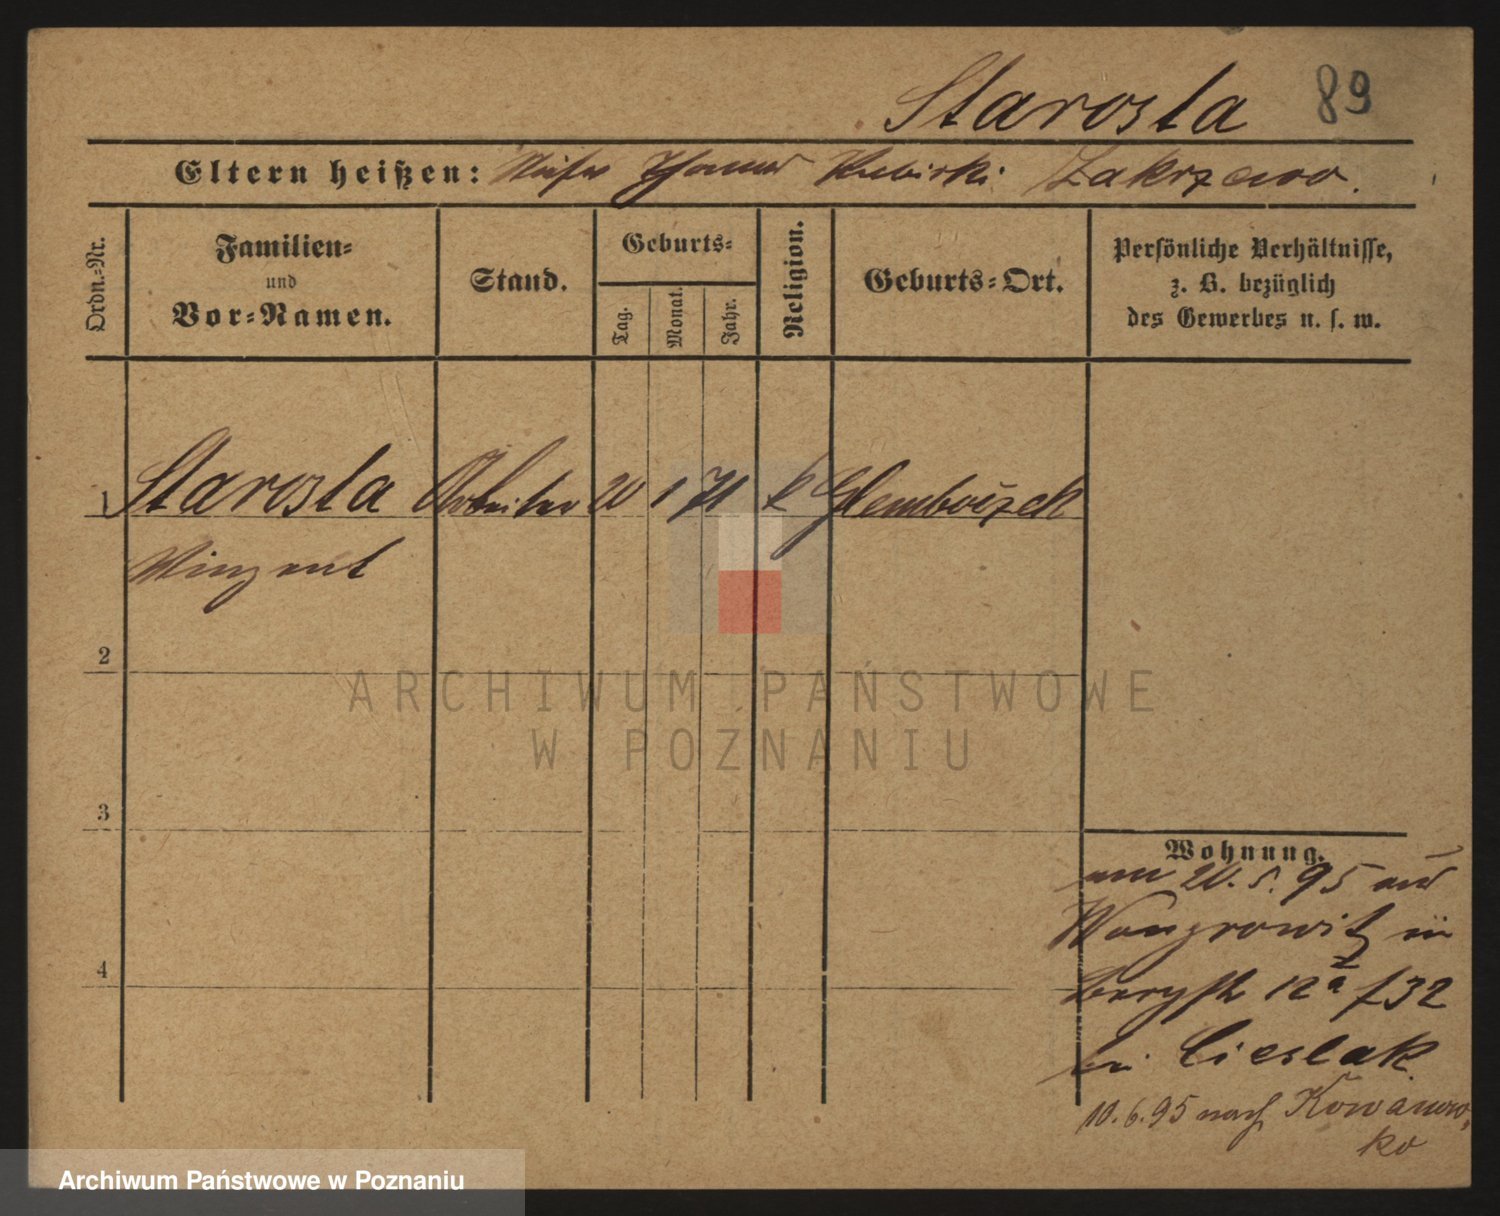 Starosta 89
Eltern heißen: Zakrzewo.
Ordn.-Nr.
Familien-
und
Vor-Namen.
Stand.
Geburts-
Tag.
Monat.
Jahr.
Religion.
Geburts-Ort.
Persönliche Verhältnisse,
z. B. bezüglich
des Gewerbes u. s. w.
1 Starosta Arbeiter 20 1 71 k Glemboczek
Vinzent
2
3
4
Wohnung.
am 20.5.95 aus
Wongrowitz in
Bergstr 12a f 32
bei Cieslak
10.6.95 nach Kowanow-
ko
ARCHIWUM PAŃSTWOWE
W POZNANIU
Archiwum Państwowe w Poznaniu